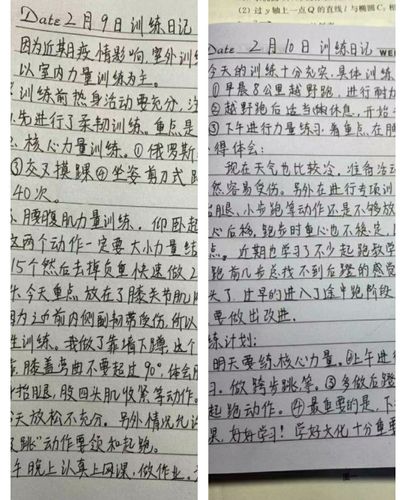 Date 2月9日训练日记
因为近期疫情影响,室外训
以室内力量训练为主。
训练前热身活动要充分,
先进行了柔韧训练。重点是
核心力量训练。①俄罗斯
③交叉摸踝④坐姿剪刀式
40次。
腰腹肌力量训练,仰卧起
这两个动作一定要大小力量结
15个然后去掉负重快速做2
今天重点放在了膝关节肌
为之前内侧副韧带受伤,所以
性训练。我做了靠墙下蹲,这个
膝盖弯曲不要超过90°,体会
抬腿,股四头肌收紧等动作。
天放松不充分。另外情况允许
跳"动作要领和起跑。
午晚上认真上网课,做作业。
(2)过y轴上一点Q的直线l与椭圆C,相
Date 2月10日训练日记 WE
今天的训练十分充实,具体训练
①早晨8公里越野跑,进行耐力
②越野跑后适当休息,开始
③下午进行力量练习,着重点在腰
得体会:
现在天气也比较冷,准备活动
然容易受伤。另外在进行专项训
抬腿、小步跑等动作还是不够放
心后移,跑步时重心也不稳定,
点。近期也学习了不少起跑教学
跑前几步总找不到后蹬的感觉
头了,过早的进入了途中跑阶段
要做出改进。
练计划:
明天要练核心力量。②上午进行
习,做跨步跳等。③多做后蹬
起跑动作。④最重要的是,下
课,好好学习!学好文化十分重要